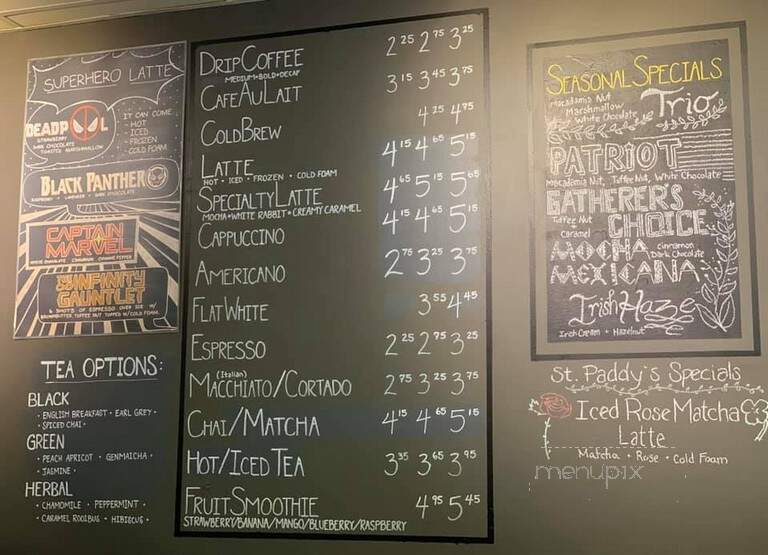 SUPERHERO LATTE
DEADPOOL
STRAWBERRY
DARK CHOCOLATE
TOASTED MARSHMALLOW
IT CAN COME
- HOT
- ICED
- FROZEN
- COLD FOAM
BLACK PANTHER
RASPBERRY · LAVENDER · DARK CHOCOLATE
CAPTAIN
MARVEL
WHITE CHOCOLATE CINNAMON CAYENNE PEPPER
THE INFINITY
GAUNTLET
6 SHOTS OF ESPRESSO OVER ICE W/
BROWNBUTTER, TOFFEE NUT TOPPED W/COLD FOAM.
TEA OPTIONS:
BLACK
· ENGLISH BREAKFAST · EARL GREY ·
· SPICED CHAI ·
GREEN
· PEACH APRICOT · GENMAICHA ·
· JASMINE ·
HERBAL
· CHAMOMILE · PEPPERMINT ·
· CARAMEL ROOIBUS · HIBISCUS ·
DRIP COFFEE 2 25 2 75 3 25
MEDIUM·BOLD·DECAF
CAFE AU LAIT 3 15 3 45 3 75
COLD BREW 4 25 4 75
LATTE 4 15 4 65 5 15
HOT · ICED · FROZEN · COLD FOAM
SPECIALTY LATTE 4 65 5 15 5 65
MOCHA·WHITE RABBIT·CREAMY CARAMEL
CAPPUCCINO 4 15 4 65 5 15
AMERICANO 2 75 3 25 3 75
FLAT WHITE 3 55 4 45
ESPRESSO 2 25 2 75 3 25
(Italian)
MACCHIATO/CORTADO 2 75 3 25 3 75
CHAI/MATCHA 4 15 4 65 5 15
HOT/ICED TEA 3 35 3 65 3 95
FRUIT SMOOTHIE 4 95 5 45
STRAWBERRY/BANANA/MANGO/BLUEBERRY/RASPBERRY
SEASONAL SPECIALS
Macadamia Nut
Marshmallow
White Chocolate
Trio
PATRIOT
Macadamia Nut, Toffee Nut, White Chocolate
GATHERER'S
CHOICE
Toffee Nut
Caramel
MOCHA
MEXICANA
Cinnamon
Dark Chocolate
Irish Haze
Irish Cream + Hazelnut
St. Paddy's Specials
Iced Rose Matcha
Latte
Matcha · Rose · Cold Foam
menupix